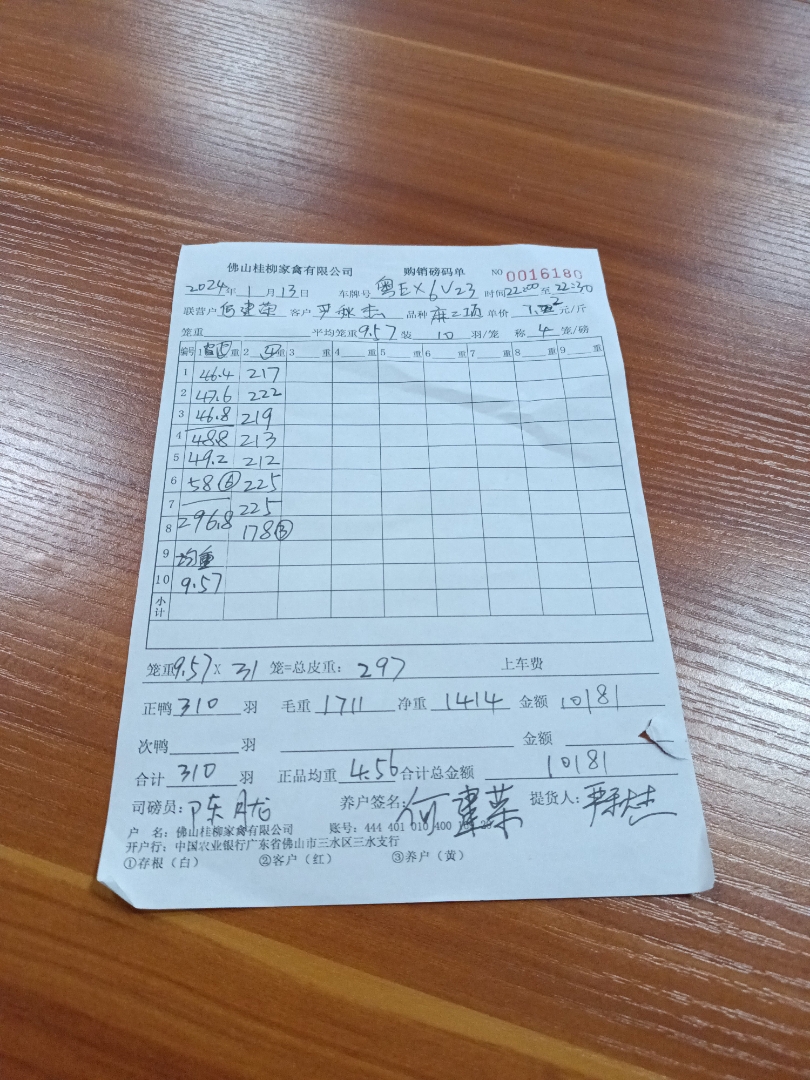 佛山桂柳家禽有限公司 购销磅码单 NO 0016180
2024年1月13日 车牌号 粤EX6V23 时间22:00至22:30
联营户 何建荣 客户 品种 麻二项 单价 元/斤
笼重 平均笼重9.57 装 10 羽/笼 称 4 笼/磅
编号 1 重 2 重 3 重 4 重 5 重 6 重 7 重 8 重 9 重
1 46.4 217
2 47.6 222
3 46.8 219
4 48.8 213
5 49.2 212
6 58⑥ 225
7 225
8 296.8 178③
9 均重
10 9.57
小计
笼重9.57X 31 笼=总皮重: 297 上车费
正鸭 310 羽 毛重 1711 净重 1414 金额 10181
次鸭 羽 金额
合计 310 羽 正品均重 4.56 合计总金额 10181
司磅员: 陈 养户签名: 何建荣 提货人:
户 名: 佛山桂柳家禽有限公司 账号: 444 401 010 400
开户行: 中国农业银行广东省佛山市三水区三水支行
①存根(白) ②客户(红) ③养户(黄)